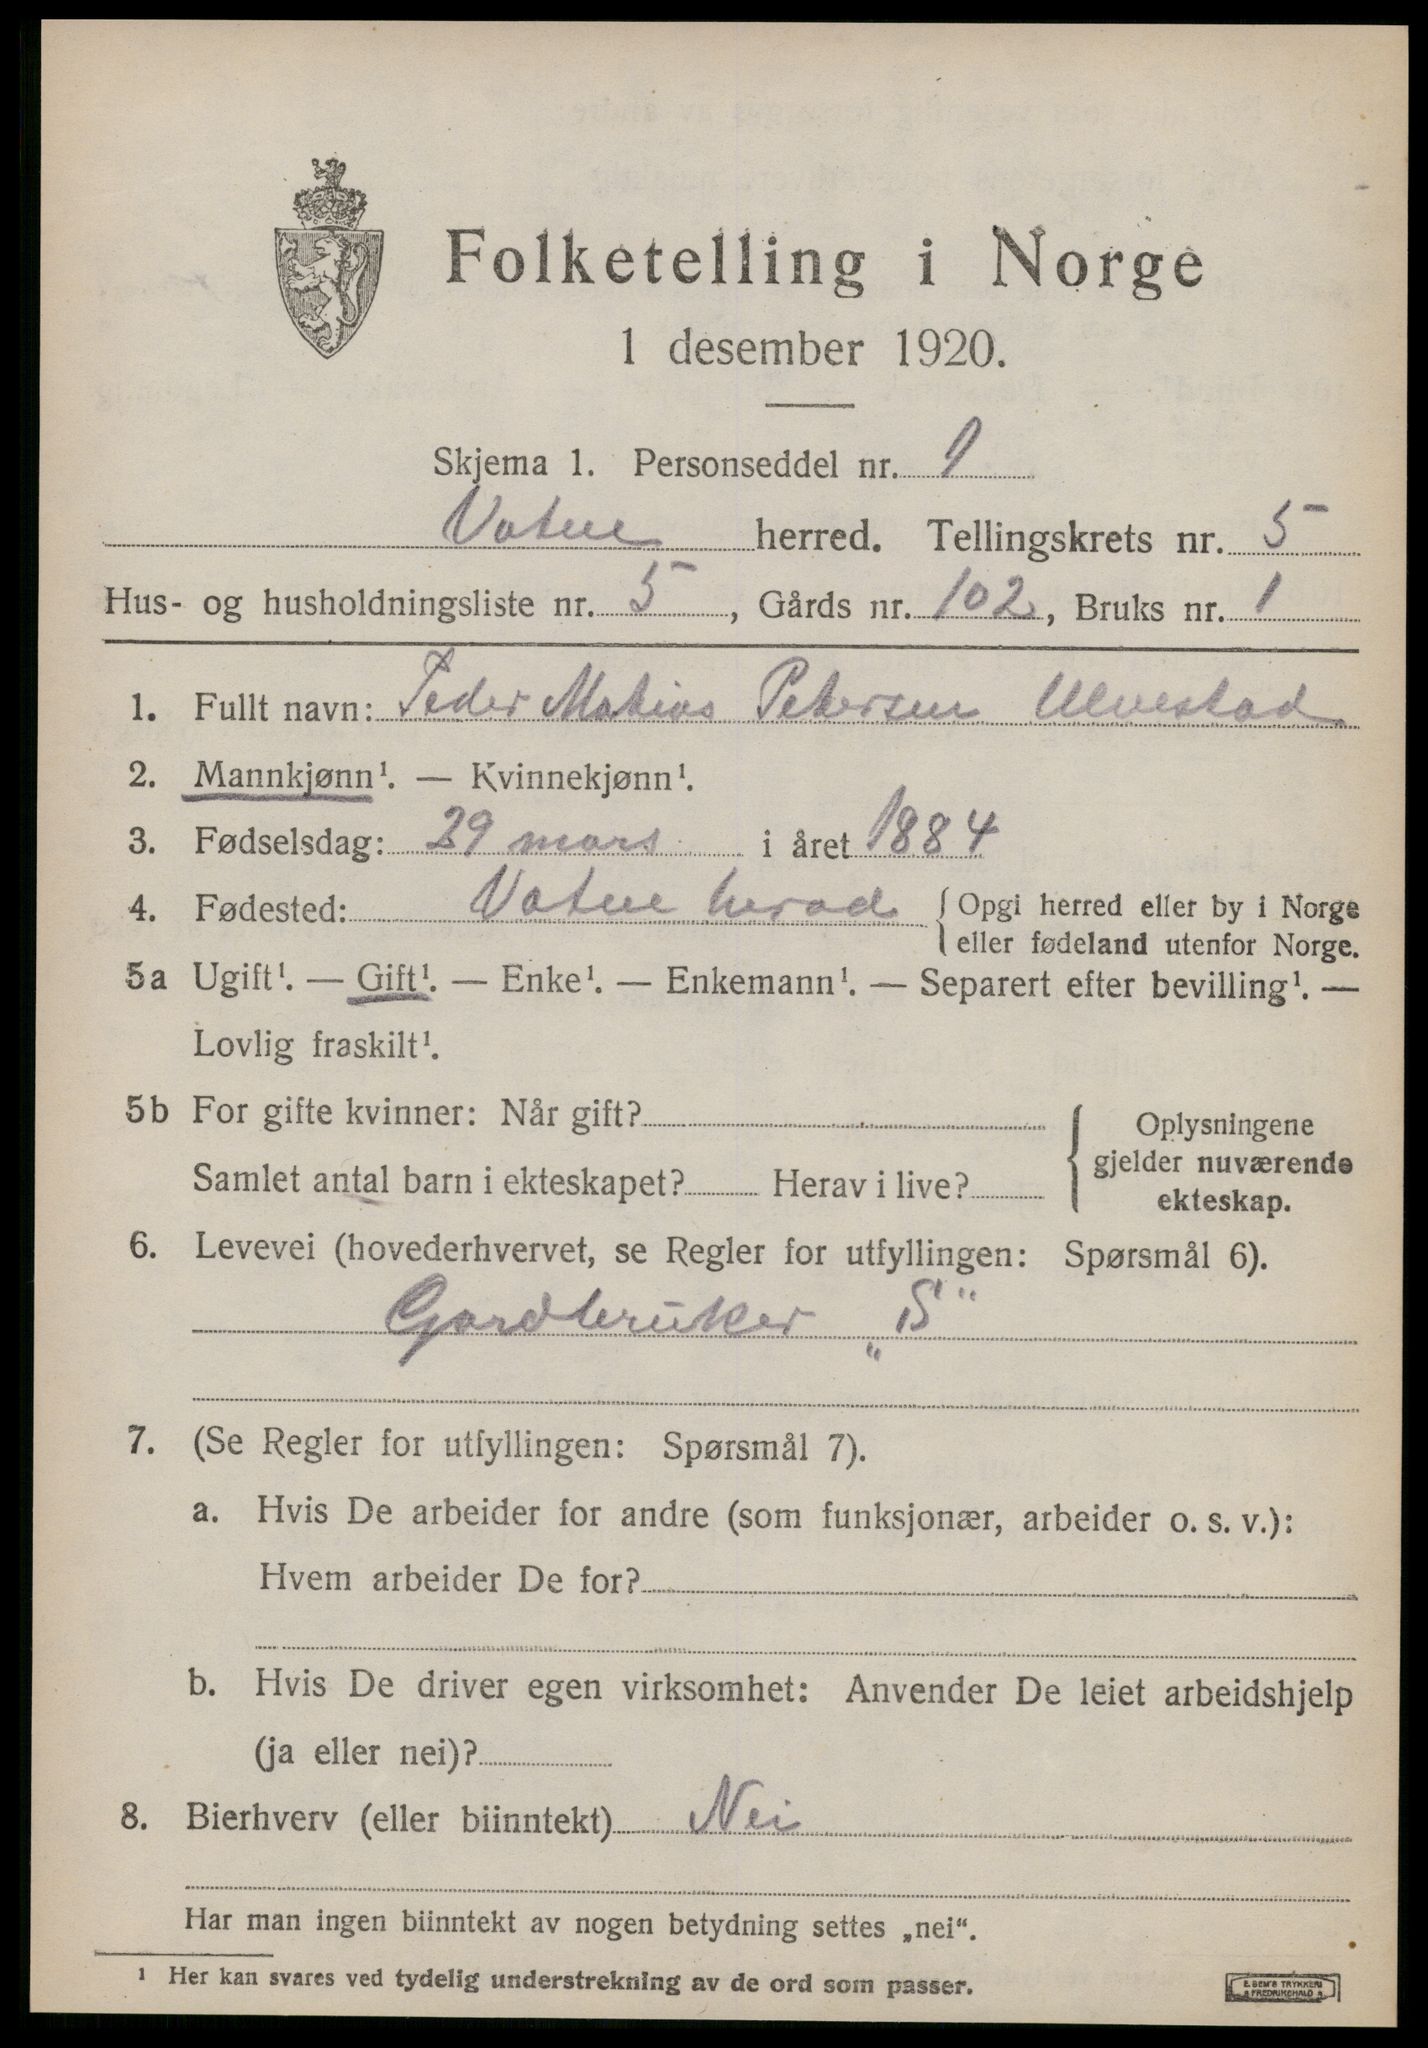 Folketelling i Norge
1 desember 1920.
Skjema 1. Personseddel nr. 1
Vatne herred. Tellingskrets nr. 5
Hus- og husholdningsliste nr. 5, Gårds nr. 102, Bruks nr. 1
1. Fullt navn: Peder Matias Petersen Ulvestad
2. Mannkjønn¹. — Kvinnekjønn¹.
3. Fødselsdag: 29 mars i året 1884
4. Fødested: Vatne herad { Opgi herred eller by i Norge
eller fødeland utenfor Norge.
5a Ugift¹. — Gift¹. — Enke¹. — Enkemann¹. — Separert efter bevilling¹. —
Lovlig fraskilt¹.
5b For gifte kvinner: Når gift?
Samlet antal barn i ekteskapet? Herav i live?
{ Oplysningene
gjelder nuværende
ekteskap.
6. Levevei (hovederhvervet, se Regler for utfyllingen: Spørsmål 6).
Gardbruker „S“
7. (Se Regler for utfyllingen: Spørsmål 7).
a. Hvis De arbeider for andre (som funksjonær, arbeider o. s. v.):
Hvem arbeider De for?
b. Hvis De driver egen virksomhet: Anvender De leiet arbeidshjelp
(ja eller nei)?
8. Bierhverv (eller biinntekt) Nei
Har man ingen biinntekt av nogen betydning settes „nei“.
¹ Her kan svares ved tydelig understrekning av de ord som passer.
E. SEM'S TRYKKERI
FREDRIKSHALD